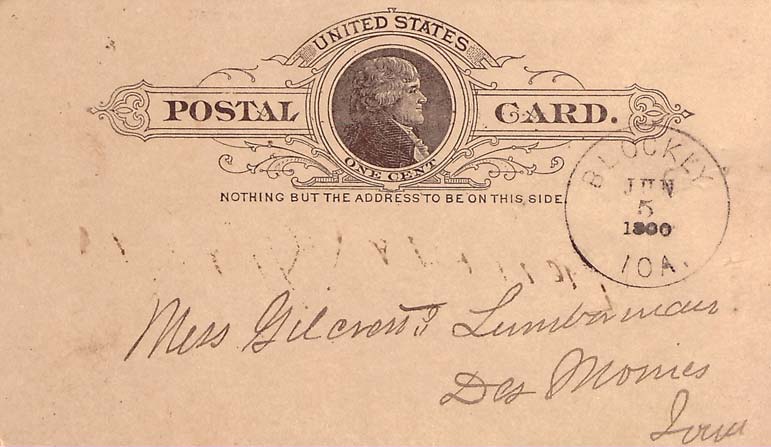 UNITED STATES
POSTAL CARD.
ONE CENT
NOTHING BUT THE ADDRESS TO BE ON THIS SIDE.
BLOCKLY
JUN
5
IOA.
Mess Gilcrest Lumberman
Des Moines
Iowa